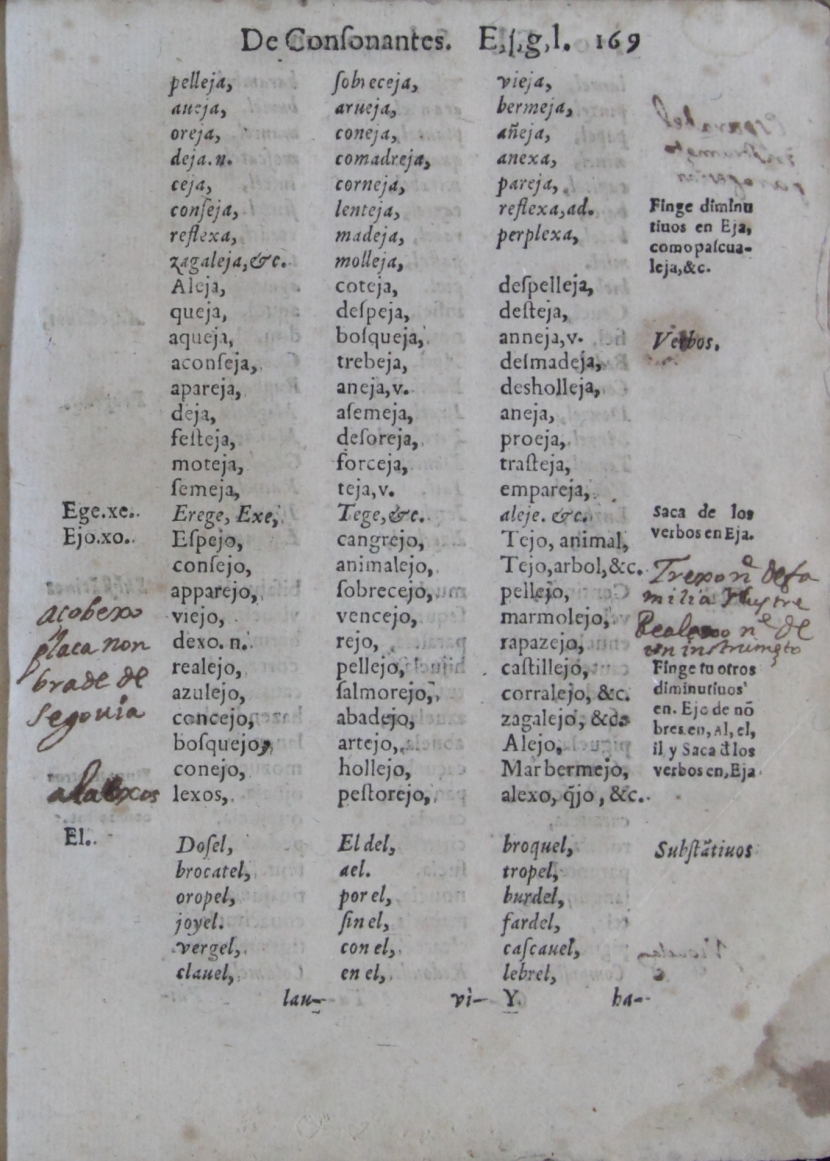 De Conſonantes. E,ſ,g,l. 169
pelleja, ſobreceja, vieja,
aueja, arueja, bermeja,
oreja, coneja, añeja,
deja.n. comadreja, anexa,
ceja, corneja, pareja,
conſeja, lenteja, reflexa,ad.
reflexa, madeja, perplexa,
zagaleja,&c. molleja,
Finge diminu
tiuos en Eja,
como paſcua-
leja,&c.
Aleja, coteja, deſpelleja,
queja, deſpeja, deſteja,
aqueja, boſqueja, anneja,v. Verbos.
aconſeja, trebeja, deſmadeja,
apareja, aneja,v. desholleja,
deja, aſemeja, aneja,
feſteja, deſoreja, proeja,
moteja, forceja, traſteja,
ſemeja, teja,v. empareja,
Ege.xe. Erege, Exe, Tege,&c. aleje. &c.
Saca de los
verbos en Eja.
Ejo.xo. Eſpejo, cangrejo, Tejo, animal,
conſejo, animalejo, Tejo,arbol,&c.
apparejo, ſobrecejo, pellejo,
viejo, vencejo, marmolejo,
dexo. n. rejo, rapazejo,
realejo, pellejo, caſtillejo,
azulejo, ſalmorejo, corralejo, &c.
concejo, abadejo, zagalejo, &c.
boſquejo, artejo, Alejo,
conejo, hollejo, Marbermejo,
lexos, peſtorejo, alexo, q̃jo, &c.
acobexo
placa non
brade de
Segovia
Trexo nᵉ de fa
milia Yluſtre
nᵉ de
vn inſtrumẽto
Finge tu otros
diminutiuos
en. Ejo de nõ
bres en, Al, el,
il y Saca d̃ los
verbos en,Eja
El. Doſel, El del, broquel, Subſtãtiuos
brocatel, ael. tropel,
oropel, por el, burdel,
joyel. ſin el, fardel,
vergel, con el, caſcauel,
clauel, en el, lebrel,
lau- vi- Y ha-